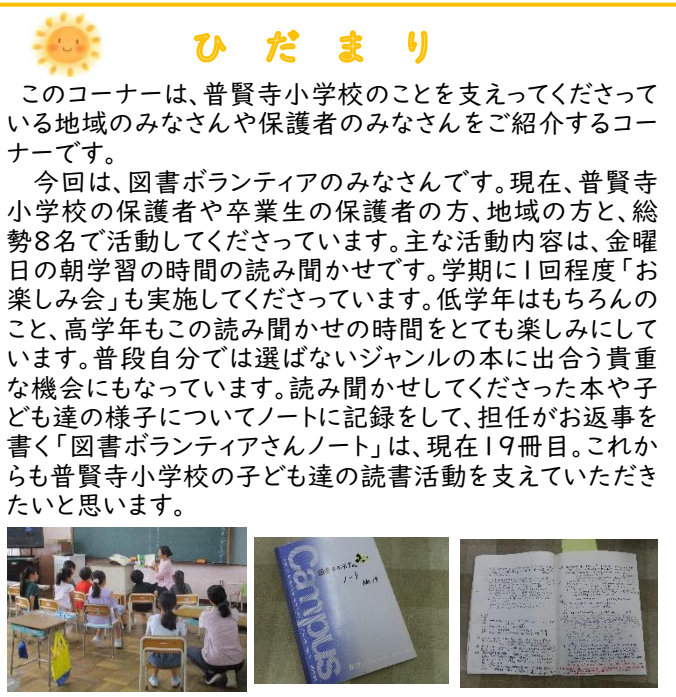 ひだまり
このコーナーは、普賢寺小学校のことを支えってくださって
いる地域のみなさんや保護者のみなさんをご紹介するコー
ナーです。
今回は、図書ボランティアのみなさんです。現在、普賢寺
小学校の保護者や卒業生の保護者の方、地域の方と、総
勢8名で活動してくださっています。主な活動内容は、金曜
日の朝学習の時間の読み聞かせです。学期に1回程度「お
楽しみ会」も実施してくださっています。低学年はもちろんの
こと、高学年もこの読み聞かせの時間をとても楽しみにして
います。普段自分では選ばないジャンルの本に出合う貴重
な機会にもなっています。読み聞かせしてくださった本や子
ども達の様子についてノートに記録をして、担任がお返事を
書く「図書ボランティアさんノート」は、現在19冊目。これか
らも普賢寺小学校の子ども達の読書活動を支えていただき
たいと思います。
ノート
No.19
Campus